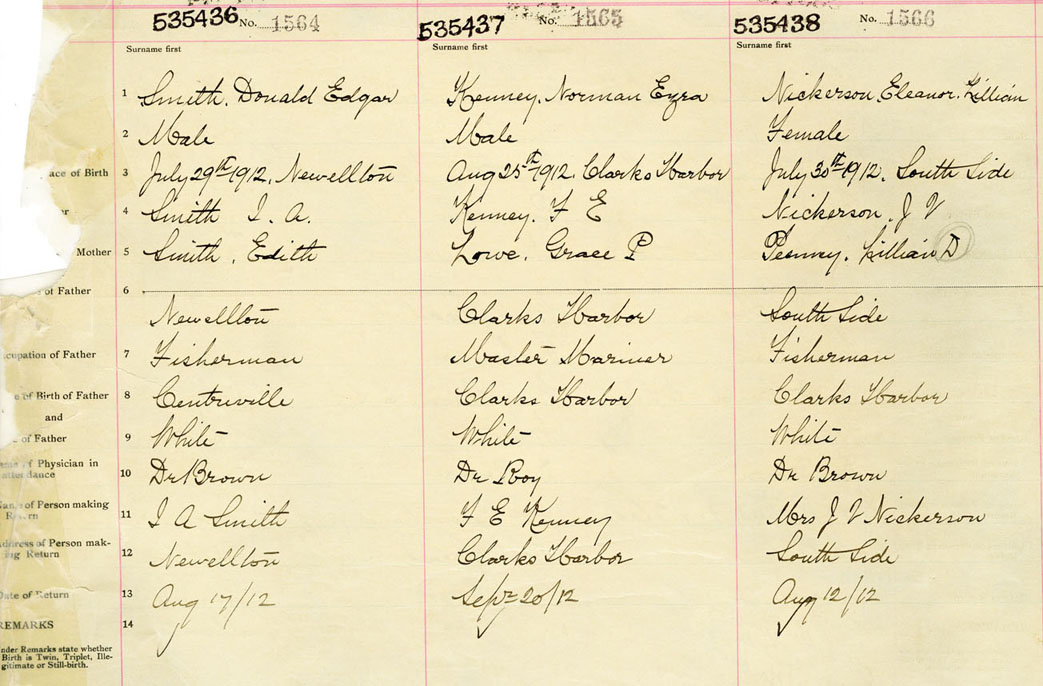 535436 No. 1564 535437 No. 1565 535438 No. 1566
Surname first Surname first Surname first
1 Smith, Donald Edgar Kenney, Norman Ezra Nickerson, Eleanor Lillian
2 Male Male Female
ace of Birth 3 July 29th 1912, Newellton Aug 25th 1912, Clarks Harbor July 30th 1912, South Side
er 4 Smith I. A. Kenney, F E Nickerson, J V
Mother 5 Smith, Edith Lowe, Grace P Penney, Lillian D
of Father 6
Newellton Clarks Harbor South Side
ccupation of Father 7 Fisherman Master Mariner Fisherman
e of Birth of Father 8 Centreville Clarks Harbor Clarks Harbor
and
of Father 9 White White White
of Physician in
attendance 10 Dr Brown Dr Roy Dr Brown
of Person making
Return 11 I A Smith F E Kenney Mrs J V Nickerson
Address of Person mak-
ing Return 12 Newellton Clarks Harbor South Side
Date of Return 13 Aug 17/12 Sept 20/12 Aug 12/12
REMARKS 14
nder Remarks state whether
Birth is Twin, Triplet, Ille-
gitimate or Still-birth.